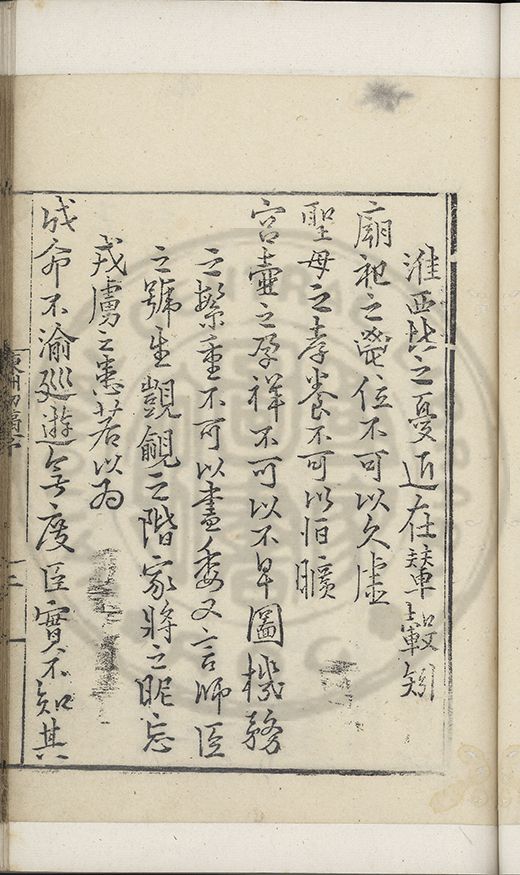 淮西之憂近在輦轂矧
廟祀之鬯位不可以久虛
聖母之孝養不可以旧曠
宮壼之孕祥不可以不早圖機務
之繁重不可以盡委又言師臣
之號生覬覦之階家將之昵忘
戎虜之患若以為
成命不渝廵遊無度臣實不知其